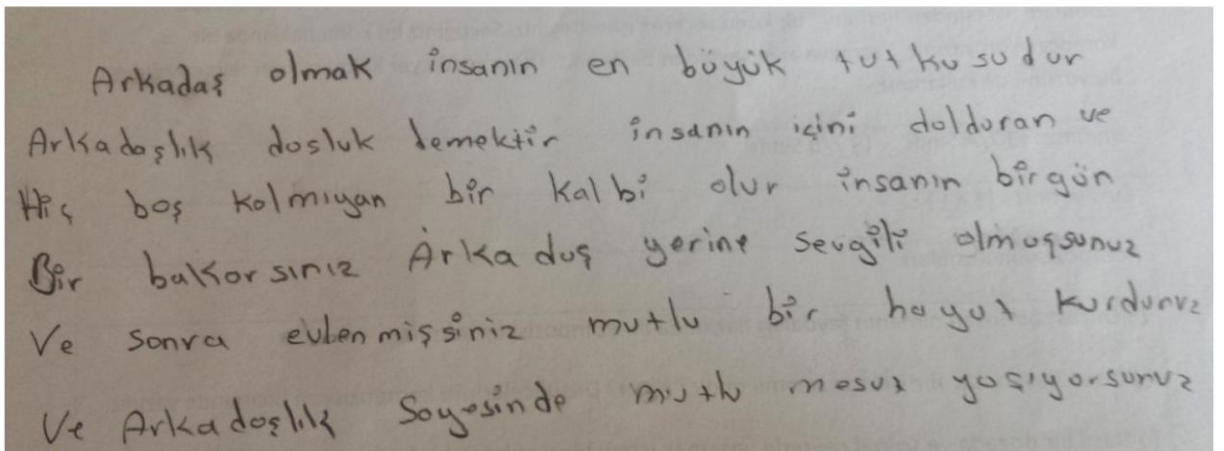 Arkadaş olmak insanın en büyük tutkusudur
Arkadaşlık dosluk demektir insanın içini dolduran ve
Hiç boş kalmıyan bir kalbi olur insanın birgün
Bir bakarsınız Arkadaş yerine sevgili olmuşsunuz
Ve sonra evlenmişsiniz mutlu bir hayat kurdunuz
Ve Arkadaşlık Sayesinde mutlu mesut yaşıyorsunuz